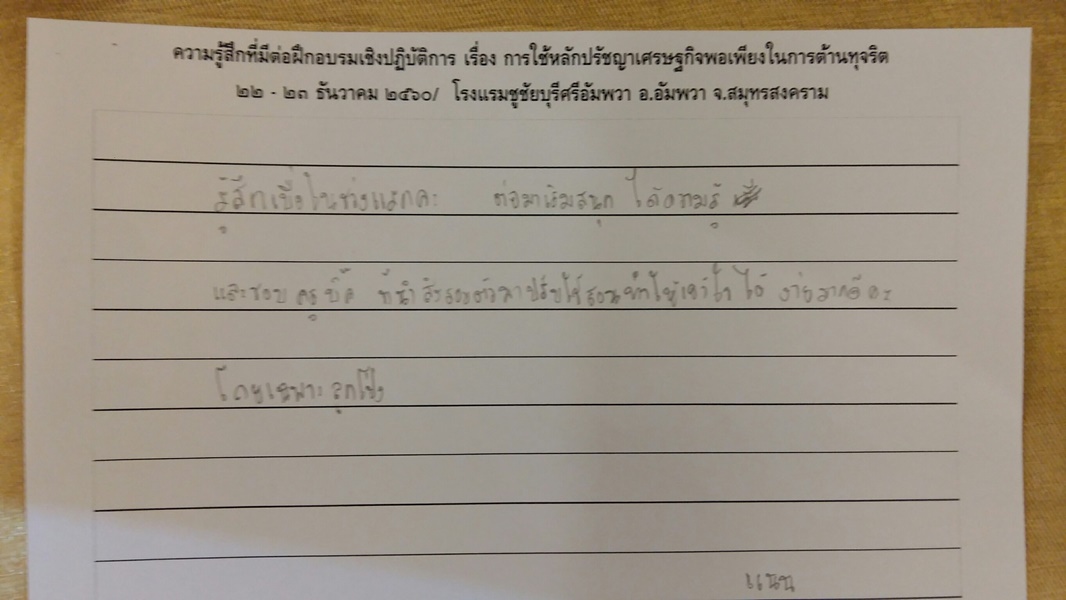 ความรู้สึกที่มีต่อฝึกอบรมเชิงปฏิบัติการ เรื่อง การใช้หลักปรัชญาเศรษฐกิจพอเพียงในการต้านทุจริต
๒๒ - ๒๓ ธันวาคม ๒๕๖๐/ โรงแรมชูชัยบุรีศรีอัมพวา อ.อัมพวา จ.สมุทรสงคราม
รู้สึกเบื่อในช่วงแรกคะ ต่อมาเริ่มสนุก ได้ความรู้
และชอบ ครู บิ๊ก ที่นำ สิ่งรอบตัวมาปรับใช้สอนทำให้เข้าใจ ได้ ง่าย คะ
โดยเฉพาะ ลูกโป่ง
แนน